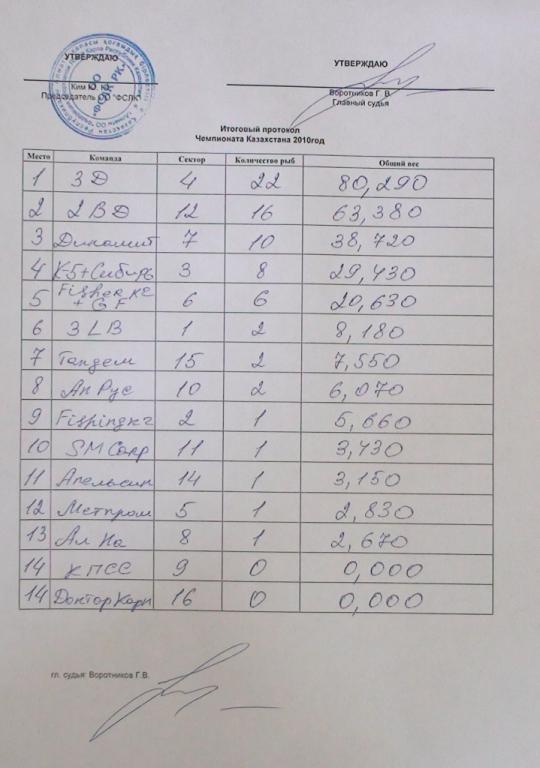 УТВЕРЖДАЮ
Ким Ю.
Председатель ОО "ФСЛК"
УТВЕРЖДАЮ
Воротников Г. В.
Главный судья
Итоговый протокол
Чемпионата Казахстана 2010год
Место Команда Сектор Количество рыб Общий вес
1 3D 4 22 80,290
2 2BD 12 16 63,380
3 Динамит 7 10 38,720
4 К-5+Сибирь 3 8 29,430
5 Fisher.kz + GF 6 6 20,630
6 3LB 1 2 8,180
7 Тандем 15 2 7,550
8 Ан Рус 10 2 6,070
9 Fishingkz 2 1 5,660
10 SM Carp 11 1 3,430
11 Апельсин 14 1 3,150
12 Метпром 5 1 2,830
13 Ал На 8 1 2,670
14 КПСС 9 0 0,000
14 Доктор Карп 16 0 0,000
гл. судья: Воротников Г.В.